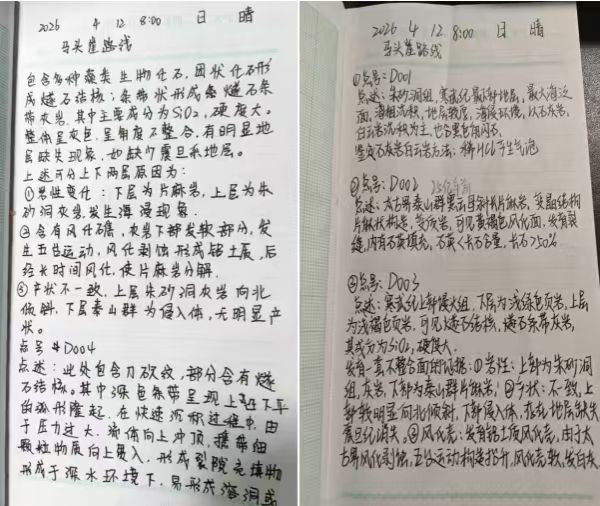 2026 4 12 8:00 日 晴
马头崖路线
包含多种藻类生物化石,团块化石形
成燧石结核;条带状形成条燧石条
带灰岩,其中主要成分为SiO₂,硬度大。
整体呈灰色,呈角度不整合,有明显地
层缺失现象,如缺少震旦系地层。
上述可分上下两层原因为:
①岩性变化:下层为片麻岩,上层为朱
砂洞灰岩,发生海侵现象.
②含有风化石膏,灰岩下部发软部分,发
生五台运动,风化剥蚀形成铝土质,后
经长时间风化,使片麻岩分解.
③产状不一致,上层朱砂洞灰岩向北
倾斜.下层泰山群为侵入体,无明显产
状。
点号#D004
点述:此处包含刀砍纹,部分含有燧
石结核。其中深色条带呈现上凸下平
的弧形隆起.在快速沉积过程中,由
于压力过大.流体向上冲顶,携带细
颗粒物质向上贯入.形成裂隙充填物
形成于深水环境下.易形成溶洞或
2026 4 12 8:00 日 晴
马头崖路线
①点号:D001
点述:朱砂洞组,寒武纪最下部地层,最大海泛
面,海相沉积,地层较厚,海陆环境,以石灰岩,
白云岩沉积为主,也含黑色团石.
鉴定石灰岩白云岩方法:稀HCl产生气泡
②点号:D002 25亿年前
点述:太古界泰山群黑云母斜长片麻岩,变晶结构
片麻状构造,变质岩,可见黄褐色风化面,发育裂
缝,内有石英填充,石英<长石含量,长石>50%
③点号:D003
点述:寒武纪上部馒头组,下层为浅绿色页岩,上层
为浅褐色页岩,可见燧石结核,燧石条带灰岩,
其成分为SiO₂,硬度大.
发育一套不整合面的证据:①岩性:上部为朱砂洞
组,灰岩,下部为泰山群片麻岩;②产状:不一致,上
部较明显向北倾斜,下部侵入体,存在地层缺失
震旦纪消失。③风化壳:发育铝土质风化壳,由于太
古界风化剥蚀,五台运动构造抬升,风化壳软,发白灰